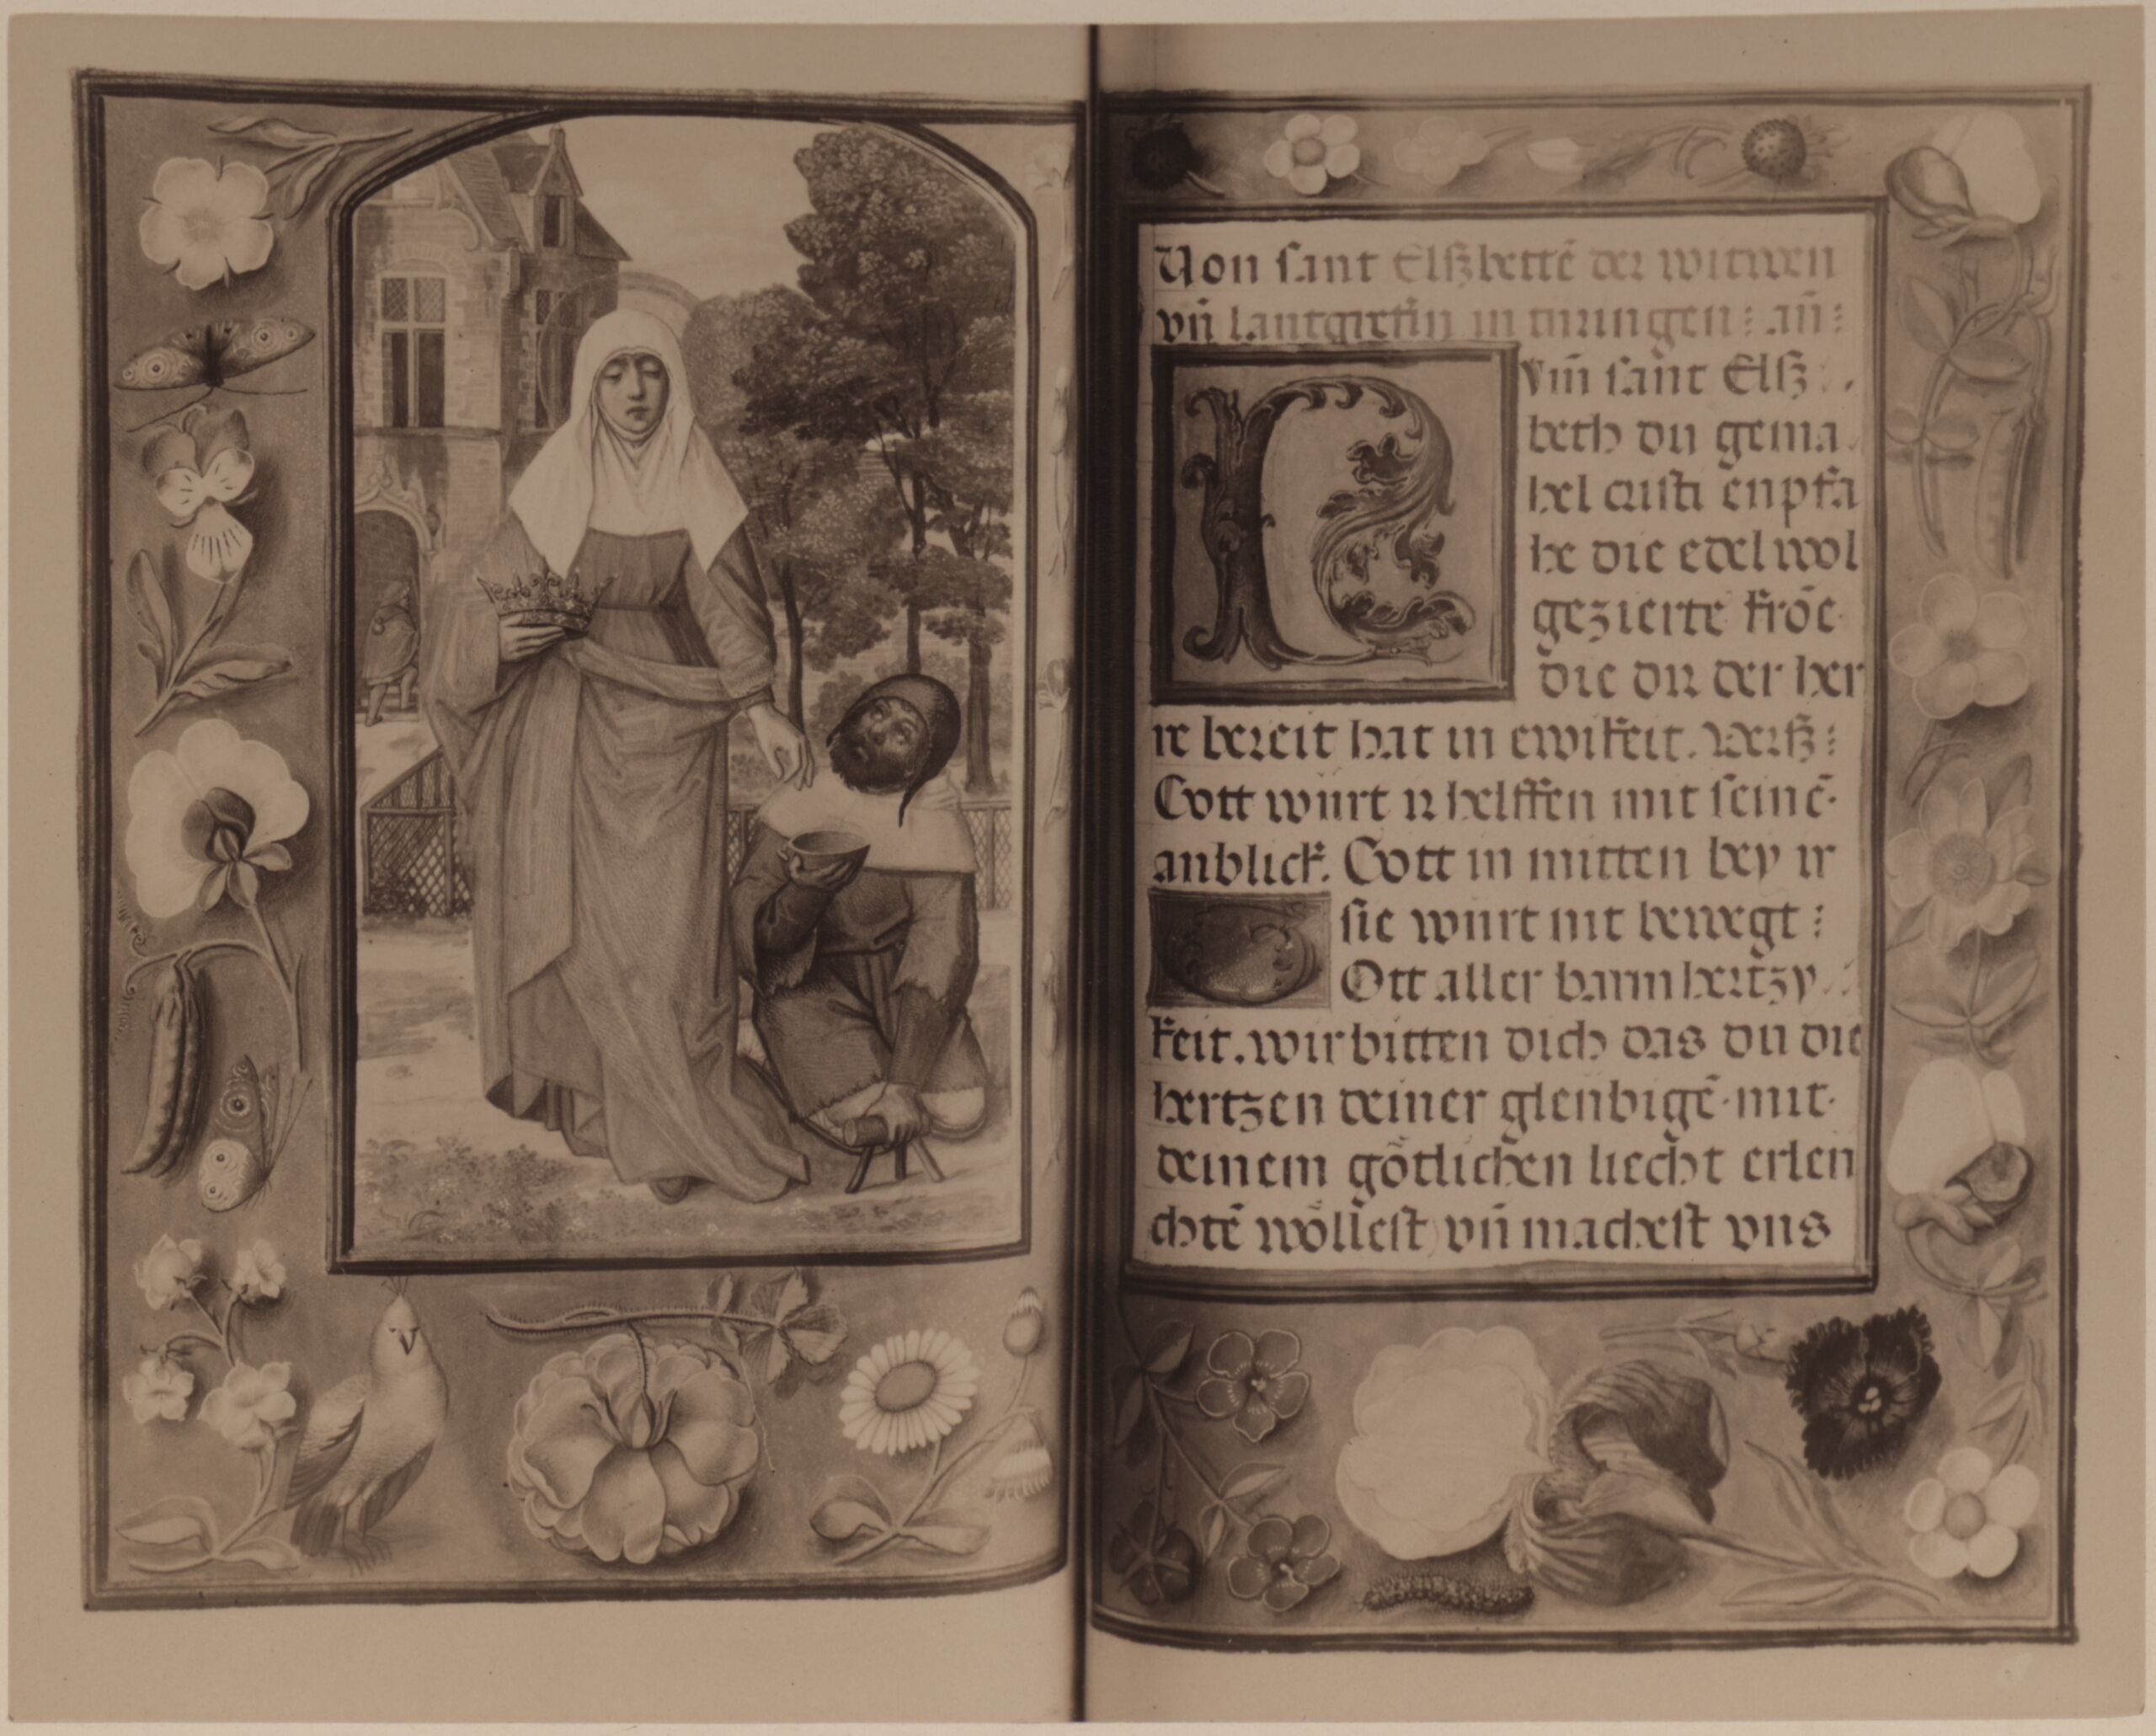 Von sant Elſzbettē der witwen
vn̄ lantgrefin in turingen : an̄ :
Kvm̄ sant Elſz
beth du gema
hel cristi enpfa
he die edel wol
gezierte krōe
die dir der her
re bereit hat in ewikeit. Verſz :
Gott würt ir helffen mit seinē
anblick. Gott in mitten bey ir
sie würt nit bewegt :
GOtt aller barmhertzy
keit. wir bitten dich das du die
hertzen deiner gleubigē mit
deinem götlichen liecht erleu
chtē wöllest vn̄ machest vns